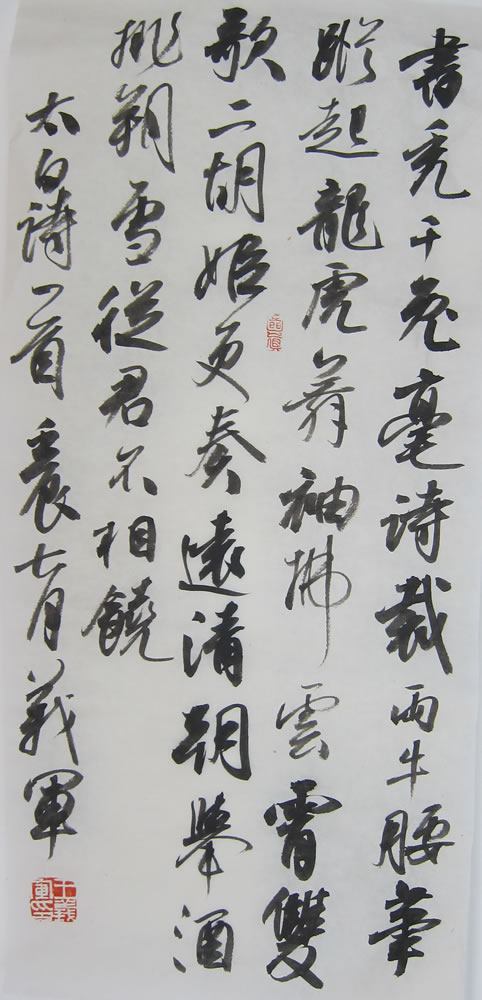 書禿千兔毫詩裁兩牛腰筆
蹤起龍虎舞袖拂雲霄雙
歌二胡姬更奏遠清朝舉酒
挑朔雪從君不相饒
太白詩一首壬辰七月義軍